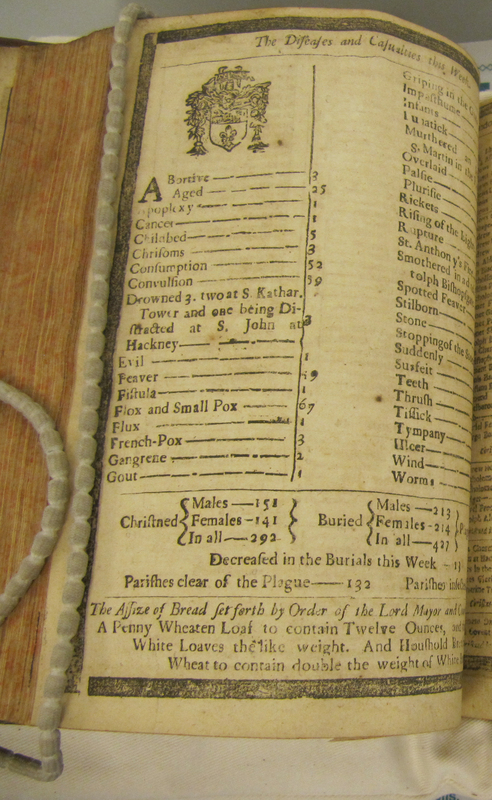 The Diseases and Casualties this Week
ABortive 3
Aged 25
Apoplexy 1
Cancer 1
Childbed 5
Chrisoms 3
Consumption 52
Convulsion 39
Drowned 3. two at S. Kathar.
Tower and one being Di-
stracted at S. John at
Hackney 3
Evil 1
Feaver
Fistula 1
Flox and Small Pox 67
Flux 1
French-Pox 3
Gangrene 2
Gout 1
Griping in the
Impósthume
Infants
Lunatick
Murthered
S. Martin in the
Overlaid
Palsie
Plurisie
Rickets
Rising of the Lights
Rupture
St. Anthony's Fire
Smothered in a
tolph Bishopsgate
Spotted Feaver
Stilborn
Stone
Stopping of the
Suddenly
Surfeit
Teeth
Thrush
Tissick
Tympany
Ulcer
Wind
Worms
Christned Males 151 Females 141 In all 292
Buried Males 213 Females 214 In all 427
Decreased in the Burials this Week
Parishes clear of the Plague 132 Parishes
The Assize of Bread set forth by Order of the Lord Mayor and
A Penny Wheaten Loaf to contain Twelve Ounces,
White Loaves the like weight. And Houshold
Wheat to contain double the weight of White